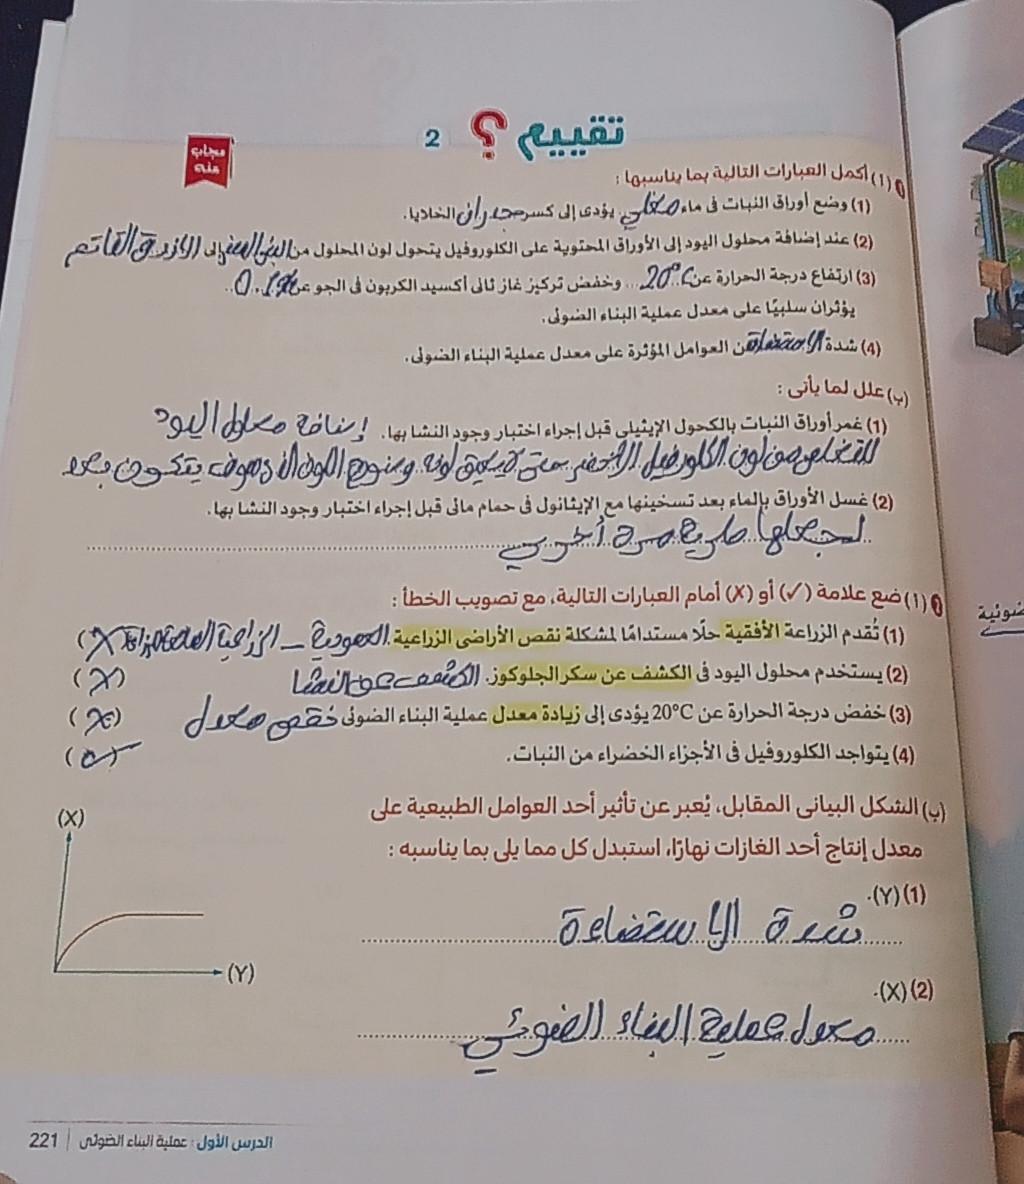 تقييم ؟ 2
مجاب عنه
1 (أ) أكمل العبارات التالية بما يناسبها :
(1) وضع أوراق النبات فى ماء مغلي يؤدى إلى كسر جدران الخلايا.
(2) عند إضافة محلول اليود إلى الأوراق المحتوية على الكلوروفيل يتحول لون المحلول من البني إلى الأزرق القاتم
(3) ارتفاع درجة الحرارة عن 20°C ... وخفض تركيز غاز ثانى أكسيد الكربون فى الجو عن 0.1% ..
يؤثران سلبيًا على معدل عملية البناء الضوئى.
(4) شدة الاستضاءة من العوامل المؤثرة على معدل عملية البناء الضوئى.
(ب) علل لما يأتى :
(1) غمر أوراق النبات بالكحول الإيثيلى قبل إجراء اختبار وجود النشا بها. إضافة محلول اليود
للتخلص من لون الكلورفيل الأخضر حتى لا يعيق لونه وضوح اللون الذي سوف يتكون بعد
(2) غسل الأوراق بالماء بعد تسخينها مع الإيثانول فى حمام مائى قبل إجراء اختبار وجود النشا بها.
لجعلها طرية مرة أخرى
2 (أ) ضع علامة (✓) أو (✗) أمام العبارات التالية، مع تصويب الخطأ :
(1) تُقدم الزراعة الأفقية حلًا مستدامًا لمشكلة نقص الأراضى الزراعية. العمودية - الزراعية (X)
(2) يستخدم محلول اليود فى الكشف عن سكر الجلوكوز. الكشف عن النشا (X)
(3) خفض درجة الحرارة عن 20°C يؤدى إلى زيادة معدل عملية البناء الضوئى خفض معدل (X)
(4) يتواجد الكلوروفيل فى الأجزاء الخضراء من النبات. (✓)
(ب) الشكل البيانى المقابل، يُعبر عن تأثير أحد العوامل الطبيعية على
معدل إنتاج أحد الغازات نهارًا، استبدل كل مما يلى بما يناسبه :
(X)
(Y)
(1) (Y).
شدة الاستضاءة
(2) (X).
معدل عملية البناء الضوئي
الدرس الأول : عملية البناء الضوئى | 221
ضوئية